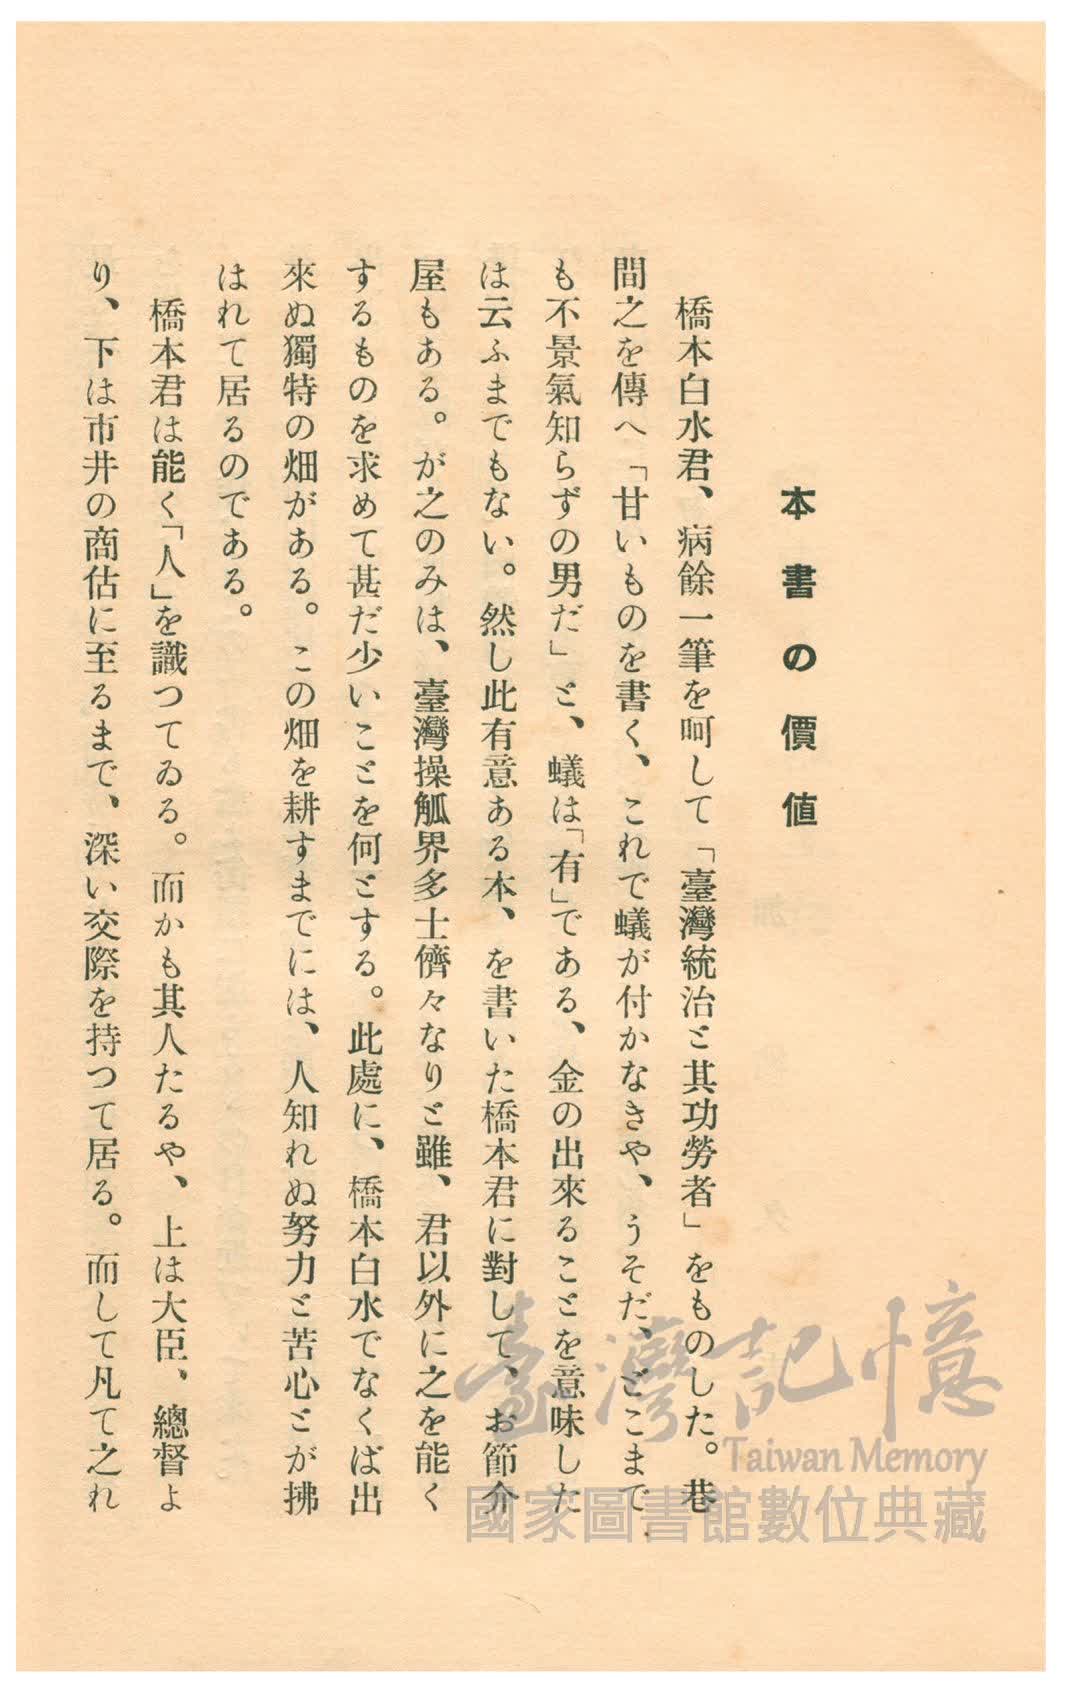 本書の價値
橋本白水君、病餘一筆を呵して「臺灣統治と其功勞者」をものした。巷
間之を傳へ「甘いものを書く、これで蟻が付かなきや、うそだ、どこまで
も不景氣知らずの男だ」と、蟻は「有」である、金の出來ることを意味した
は云ふまでもない。然し此有意ある本、を書いた橋本君に對して、お節介
屋もある。が之のみは、臺灣操觚界多士儕々なりと雖、君以外に之を能く
するものを求めて甚だ少いことを何とする。此處に、橋本白水でなくば出
來ぬ獨特の畑がある。この畑を耕すまでには、人知れぬ努力と苦心とが拂
はれて居るのである。
橋本君は能く「人」を識つてゐる。而かも其人たるや、上は大臣、總督よ
り、下は市井の商估に至るまで、深い交際を持つて居る。而して凡て之れ
臺灣記憶
Taiwan Memory
國家圖書館數位典藏